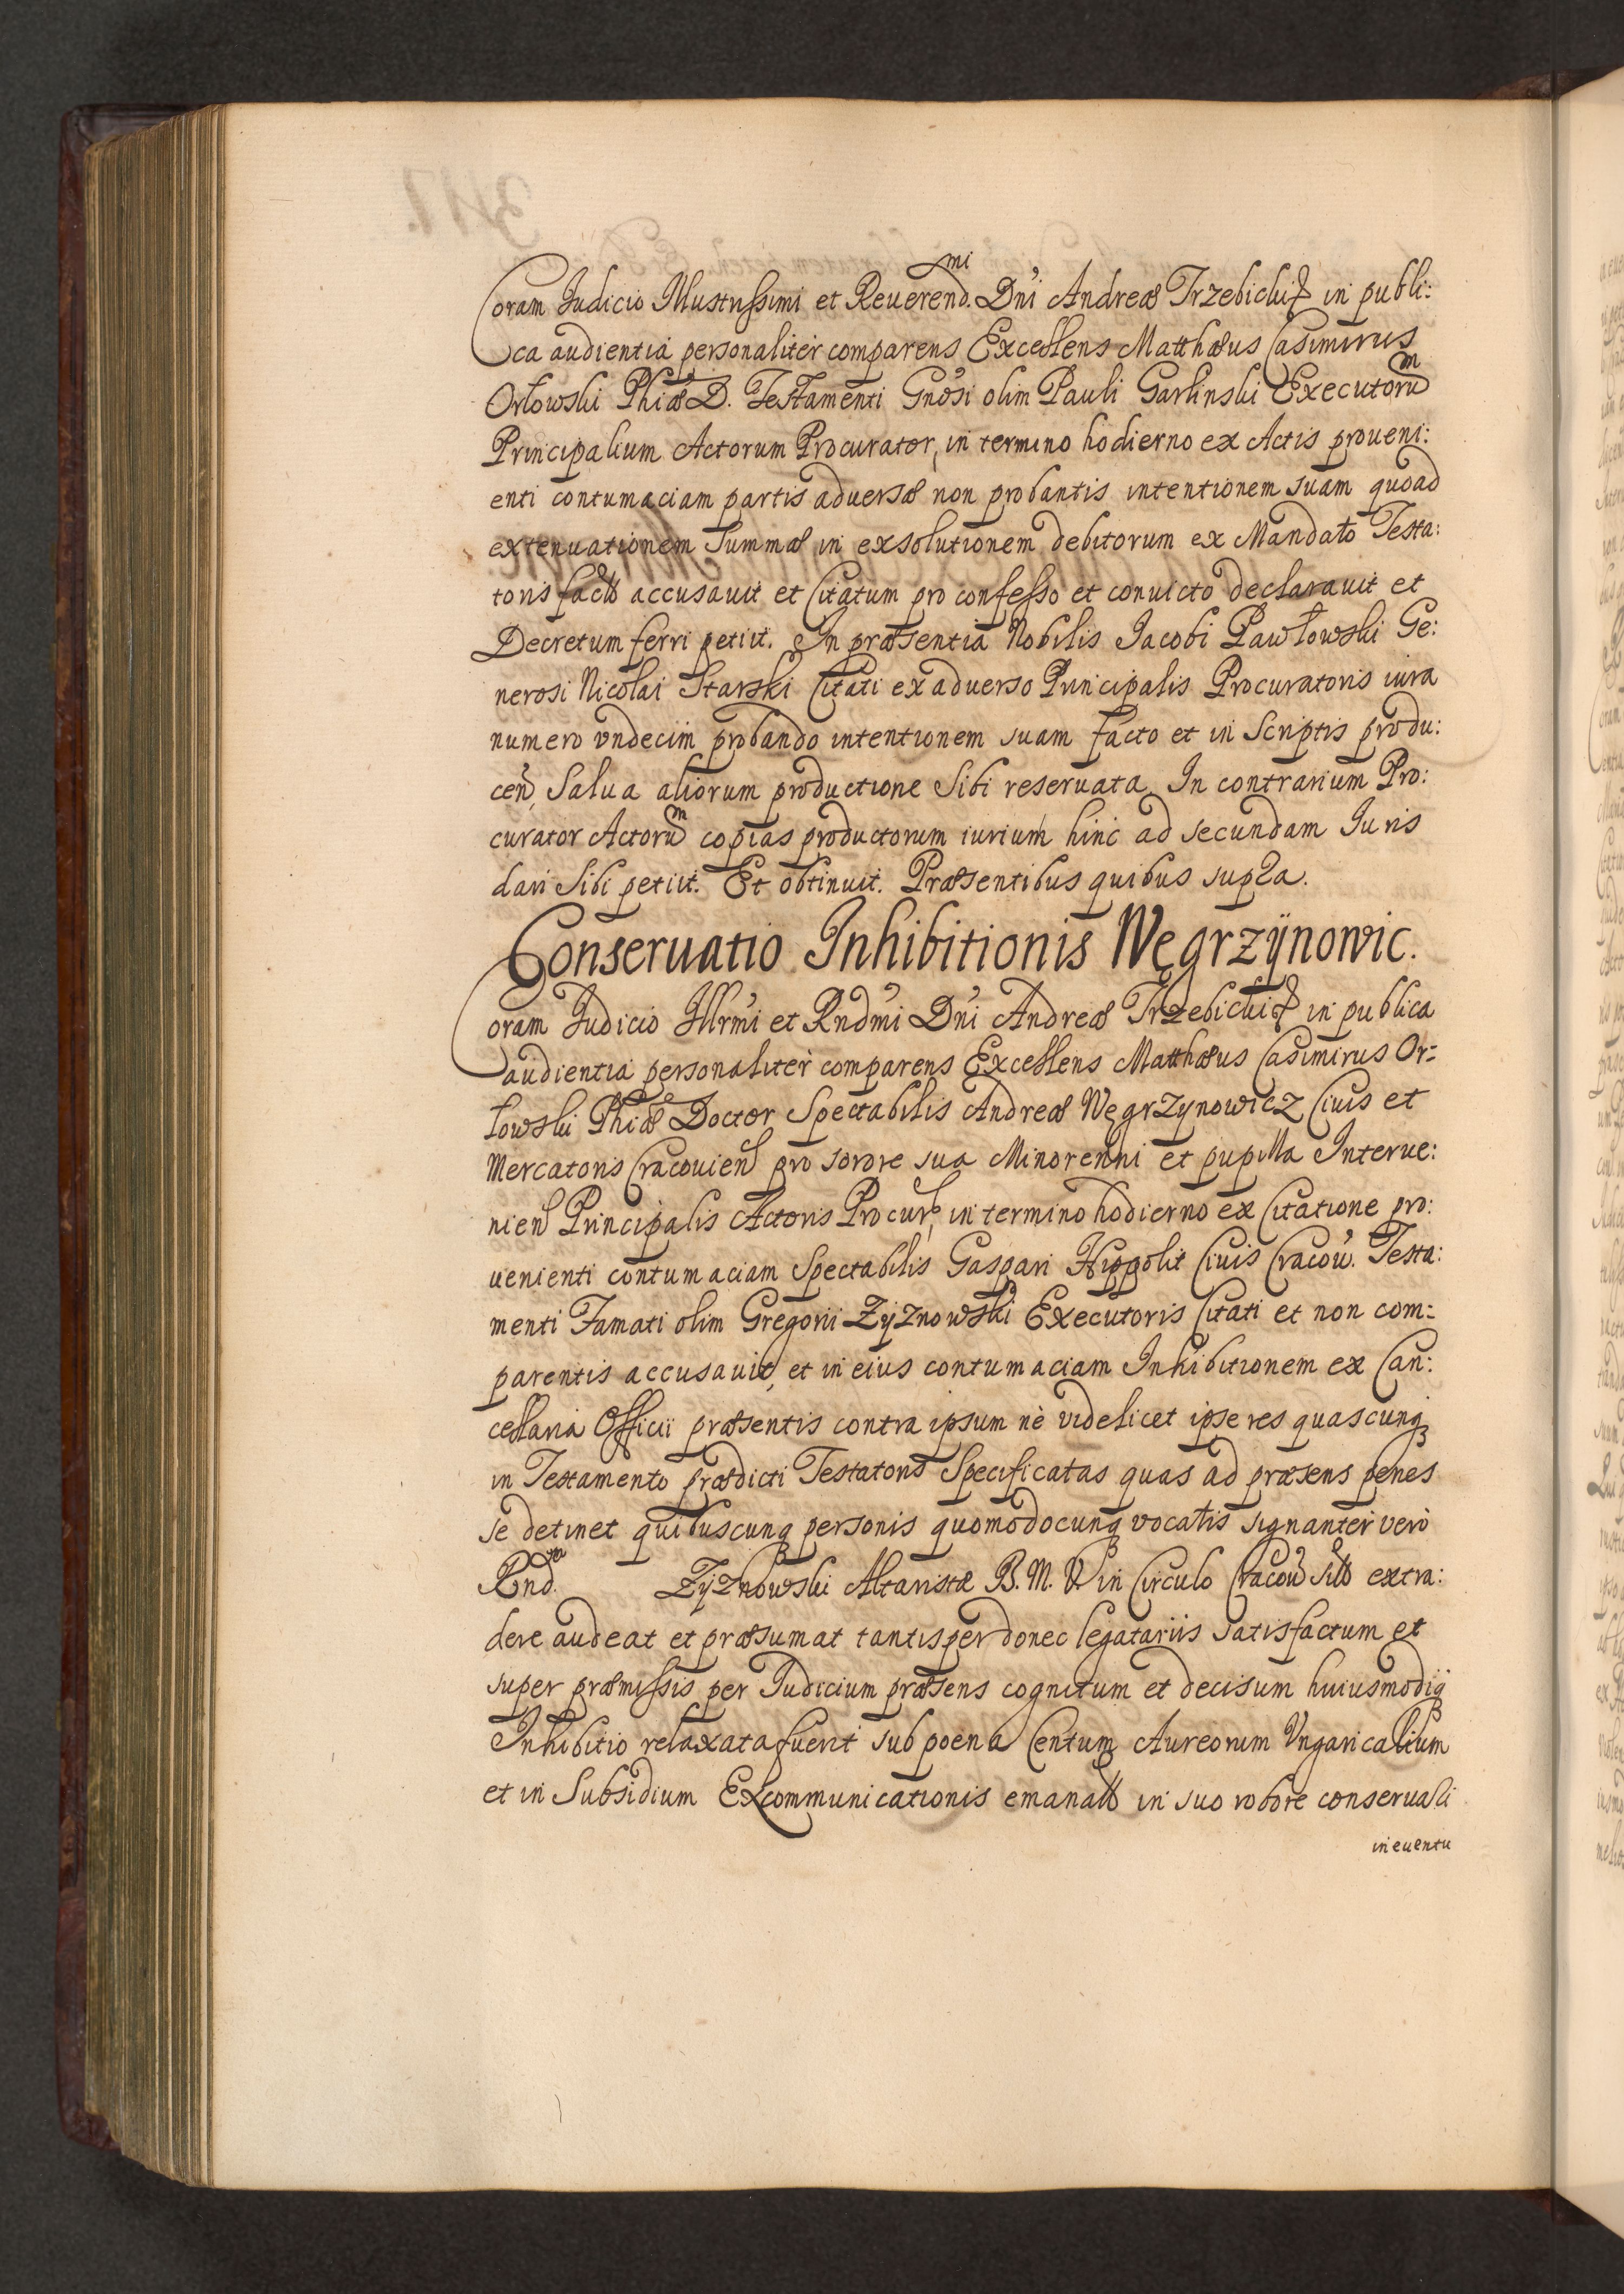 Coram Judicio Illustrissimi et Reuerend.mi Dni Andreæ Trzebicki in publi:
ca audientia personaliter comparens Excellens Matthæus Casimirus
Orłowski Phiæ D. Testamenti Gnosi olim Pauli Garlinski Executorum
Principalium Actorum Procurator, in termino hodierno ex Actis proueni:
enti contumaciam partis aduersæ non probantis intentionem suam quoad
extenuationem summæ in exsolutionem debitorum ex Mandato Testa:
toris factæ accusauit et Citatum pro confesso et conuicto declarauit et
Decretum ferri petiit. In præsentia Nobilis Jacobi Pawłowski Ge:
nerosi Nicolai Starski Citati ex aduerso Principalis Procuratoris iura
numero vndecim probando intentionem suam facto et in Scriptis produ:
cen, Salua aliorum productione Sibi reseruata. In contrarium Pro:
curator Actorum copias productorum iurium hinc ad secundam Iuris
dari Sibi petiit. Et obtinuit. Præsentibus quibus supra.
Conseruatio Inhibitionis Węgrzÿnowic.
Coram Judicio Illrmi et Rndmi Dni Andreæ Trzebicki in publica
audientia personaliter comparens Excellens Matthæus Casimirus Or-
łowski Phiæ Doctor Spectabilis Andreæ Węgrzynowicz Ciuis et
Mercatoris Cracouien pro sorore sua Minorenni et pupilla Interue:
nien Principalis Actoris Procur, in termino hodierno ex Citatione pro:
uenienti contumaciam Spectabilis Gaspari Hippolit Ciuis Cracou. Testa:
menti Famati olim Gregorii Zÿznowski Executoris Citati et non com-
parentis accusauit, et in eius contumaciam Inhibitionem ex Can:
cellaria Officii præsentis contra ipsum nè videlicet ipse res quascunq
in Testamento prædicti Testatoris Specificatas quas ad præsens penes
se detinet quibuscunq personis quomodocunq vocatis signanter verò
Rnd. Zÿznowski Altaristæ B. M. V. in Circulo Cracou sitæ extra:
dere audeat et præsumat tantisper donec legatariis satisfactum et
super præmissis per Judicium præsens cognitum et decisum huiusmodiq
Inhibitio relaxata fuerit sub poena Centum Aureorum Vngaricalium
et in Subsidium Excommunicationis emanatæ in suo robore conseruari
in euentu